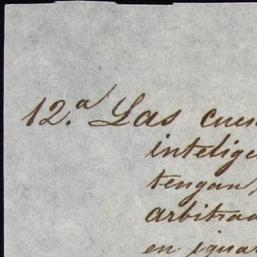 12.ª Las cuen
intelige
tengan,
arbitrad
en igua